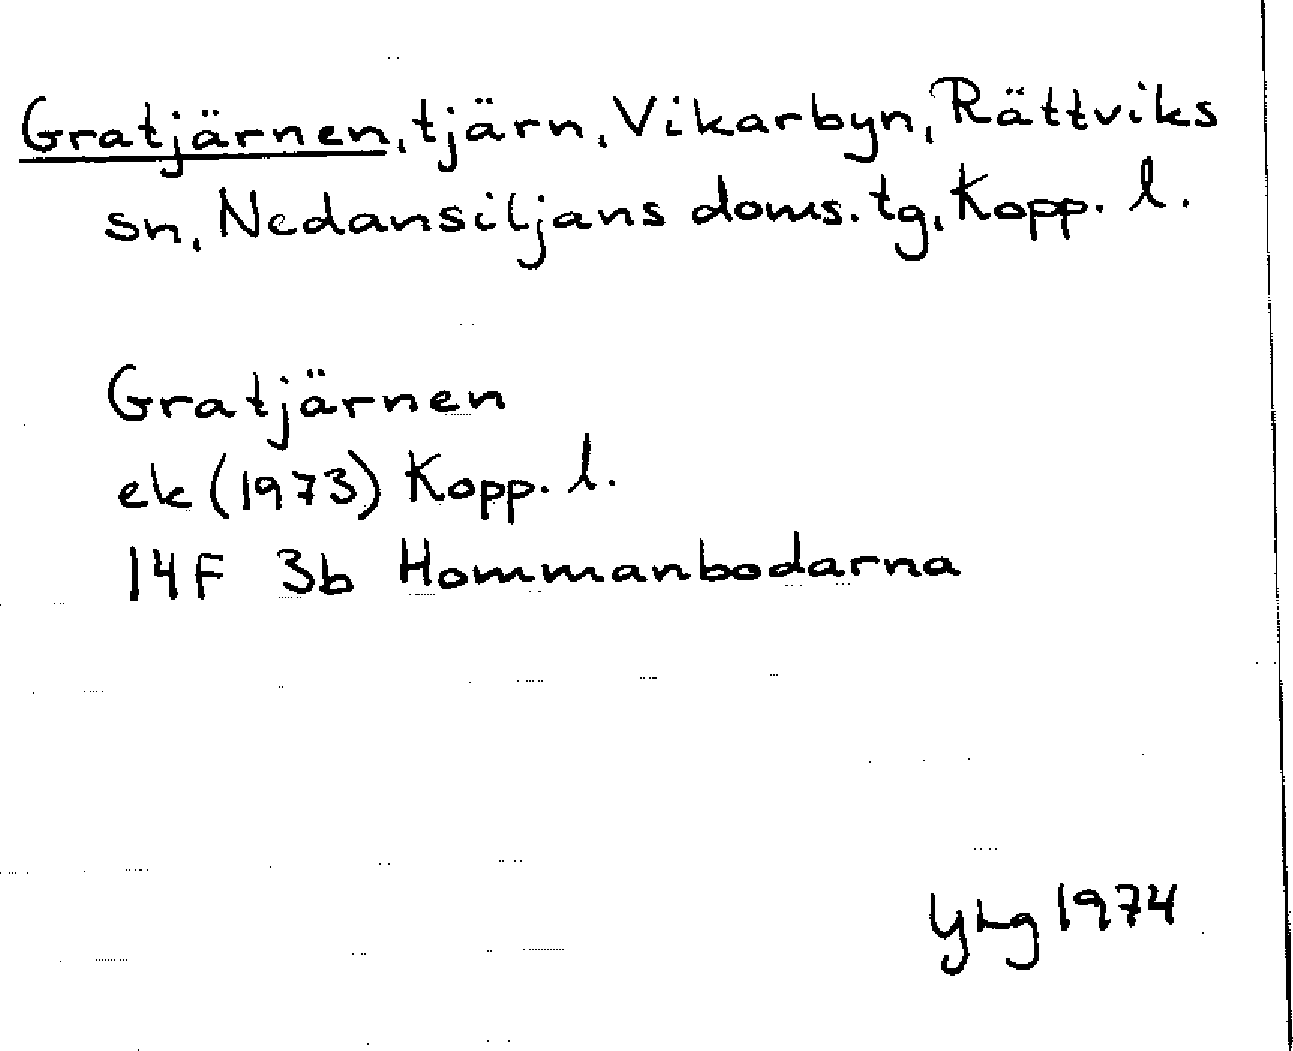 Gratjärnen, tjärn, Vikarbyn, Rättviks
sn, Nedansiljans doms. tg, Kopp. l.
Gratjärnen
ek (1973) Kopp. l.
14F 3b Hommanbodarna
YLg 1974